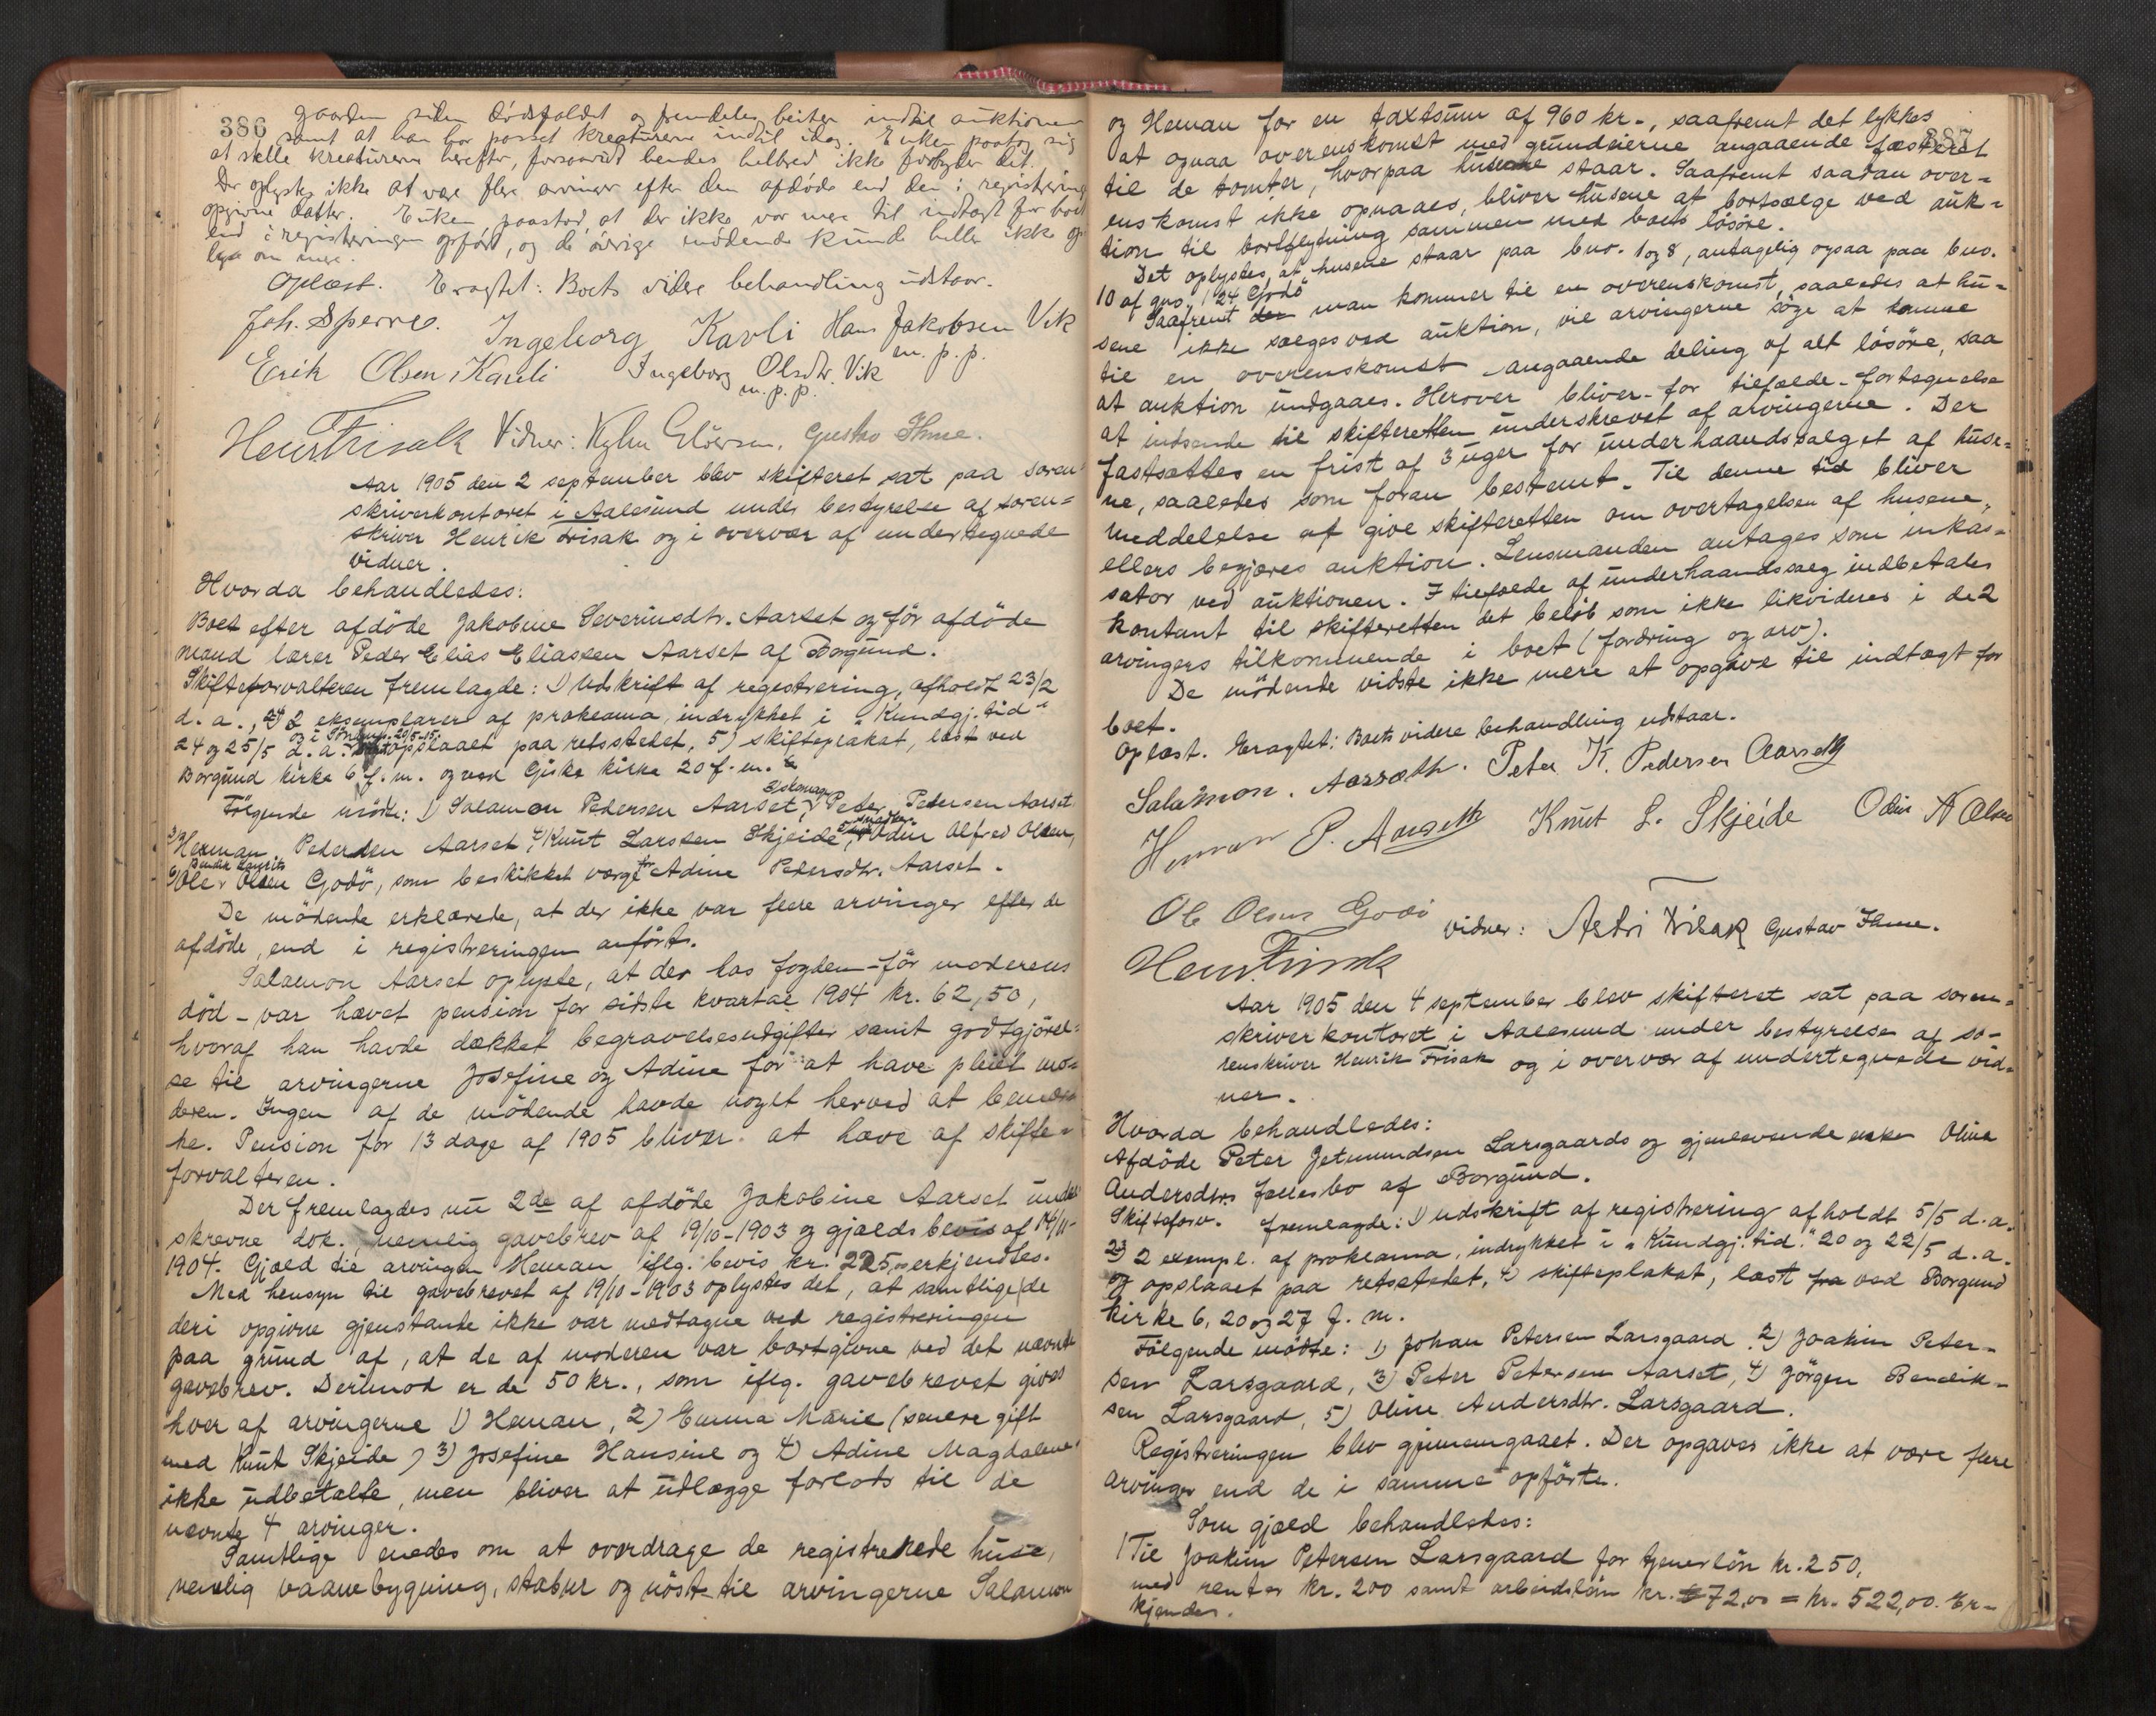 386
gaarden siden dödsfaldet og fremdeles beiter indtil auktionen
samt at han har passet kreaturerne indtil idag. Enken paatog sig
at stelle kreaturerne herefter, forsaavidt hendes helbred ikke forbyder det.
Der oplystes ikke at være flere arvinger efter den afdöde end den i registrering
opgivne datter. Enken paastod, at der ikke var mere til indtægt for boet
end i registreringen opfört, og de övrige mödende kunde heller ikke op
lyse om mere.
Oplæst. Eragtet: Boets videre behandling udstaar.
Joh. Sperre. Ingeborg Karli Hans Jakobsen Vik
m. p. p.
Erik Olsen Karli Ingeborg Olsdtr. Vik
m. p. p.
Henr Frisak Vidner: Gustav Ihme.
Aar 1905 den 2 september blev skifteret sat paa soren
skriverkontoret i Aalesund under bestyrelse af soren=
skriver Henrik Frisak og i overvær af undertegnede
vidner.
Hvorda behandledes:
Boet efter afdöde Jakobine Severinsdtr. Aarset og för afdöde
mand lærer Peder Elias Eliassen Aarset af Borgund.
Skifteforvalteren fremlagde: 1) Udskrift af registrering, afholdt 23/2
d. a., 2) 2 eksemplarer af proklama, indrykket i "Kundgj. tid"
24 og 25/5 d. a. opslaaet paa retsstedet, 5) skifteplakat, læst ved
Borgund kirke 6 f. m. og ved Giske kirke 20 f. m.
Fölgende mötte: 1) Salamon Pedersen Aarset, 2) skomager Peter Pedersen Aarset
3) Herman Pedersen Aarset, 4) Knut Larssen Skjeide, 5) Odin Alfred Olsen,
6) Ole Bendik Laurits Olsen Godö, som beskikket værge for Adine Pedersdtr. Aarset.
De mödende erklærede, at der ikke var flere arvinger efter de
afdöde, end i registreringen anförte.
Salamon Aarset oplyste, at der hos fogden - för moderens
död - var hævet pension for sidste kvartal 1904 kr. 62,50,
hvoraf han havde dækket begravelsesudgifter samt godtgjörel=
se til arvingerne Josefine og Adine for at have pleiet mo=
deren. Ingen af de mödende havde noget herved at bemær
ke. Pension for 13 dage af 1905 bliver at hæve af skifte=
forvalteren.
Der fremlagdes nu 2de af afdöde Jakobine Aarset under
skrevne dok., nemlig gavebrev af 19/10-1903 og gjældsbevis af 14/11-
1904. Gjæld til arvingen Herman iflg. bevis kr. 225,00 erkjendtes.
Med hensyn til gavebrevet af 19/10-1903 oplystes det, at samtlige de
deri opgivne gjenstande ikke var medtagne ved registreringen
paa grund af, at de af moderen var bortgivne ved det nævnte
gavebrev. Derimod er de 50 kr., som iflg. gavebrevet gives
hver af arvingerne 1) Herman, 2) Emma Marie (senere gift
med Knut Skjeide) 3) Josefine Hansine og 4) Adine Magdalene
ikke udbetalte, men bliver at udlægge forlods til de
nævnte 4 arvinger.
Samtlige enedes om at overdrage de registrerede huse,
nemlig vaanebygning, stabur og nöst til arvingerne Salamon
387
og Herman for en taxtsum af 960 kr., saafremt det lykkes
at opnaa overenskomst med grundeierne angaaende fæsteret
til de tomter, hvorpaa husene staar. Saafremt saadan over=
enskomst ikke opnaaes, bliver husene at bortsælge ved auk=
tion til bortflytning sammen med boets lösöre.
Det oplystes, at husene staar paa bno. 1 og 8, antagelig ogsaa paa bno.
10 af gno. 124 Godö
Saafremt man kommer til en overenskomst, saaledes at hu=
sene ikke sælges ved auktion, vil arvingerne söge at komme
til en overenskomst angaaende deling af alt lösöre, saa
at auktion undgaaes. Herover bliver for tilfælde fortegnelse
at indsende til skifteretten underskrevet af arvingerne. Der
fastsættes en frist af 3 uger for underhaandssalget af huse=
ne, saaledes som foran bestemt. Til denne tid bliver
meddelelse at give skifteretten om overtagelsen af husene,
ellers begjæres auktion. Lensmanden antages som inkas=
sator ved auktionen. I tilfælde af underhaandssalg indbetales
kontant til skifteretten det belöb som ikke likvideres i de 2
arvingers tilkommende i boet (fordring og arv).
De mödende vidste ikke mere at opgive til indtægt for
boet.
Oplæst. Eragtet: Boets videre behandling udstaar.
Salamon. Aarsæth. Peter K. Pedersen Aarseth
Herman P. Aarseth Knut L. Skjeide Odin A Olsen
Ole Olsen Godö vidner: Astri Frisak Gustav Ihme.
Henr Frisak
Aar 1905 den 4 september blev skifteret sat paa soren=
skriverkontoret i Aalesund under bestyrelse af so-
renskriver Henrik Frisak og i overvær af undertegnede vid=
ner.
Hvorda behandledes:
Afdöde Peter Jetmundsen Larsgaards og gjenlevende enke Oline
Andersdtrs fællesbo af Borgund.
Skifteforv. fremlagde: 1) udskrift af registrering afholdt 5/5 d. a.
2) 2 exempl. af proklama, indrykket i "Kundgj. tid." 20 og 22/5 d. a.
og opslaaet paa retsstedet, 4) skifteplakat, læst ved Borgund
kirke 6, 20 og 27 f. m.
Fölgende mötte: 1) Johan Petersen Larsgaard 2) Joakim Peter-
sen Larsgaard, 3) Peter Petersen Aarset, 4) Jörgen Bendik-
sen Larsgaard, 5) Oline Andersdtr. Larsgaard.
Registreringen blev gjennemgaaet. Der opgaves ikke at være flere
arvinger end de i samme opförte.
Som gjæld behandledes:
1 Til Joakim Petersen Larsgaard for tjenerlön kr. 250,
med renter kr. 200 samt arbeidslön kr. 72,00 = kr. 522,00. Er-
kjendes.